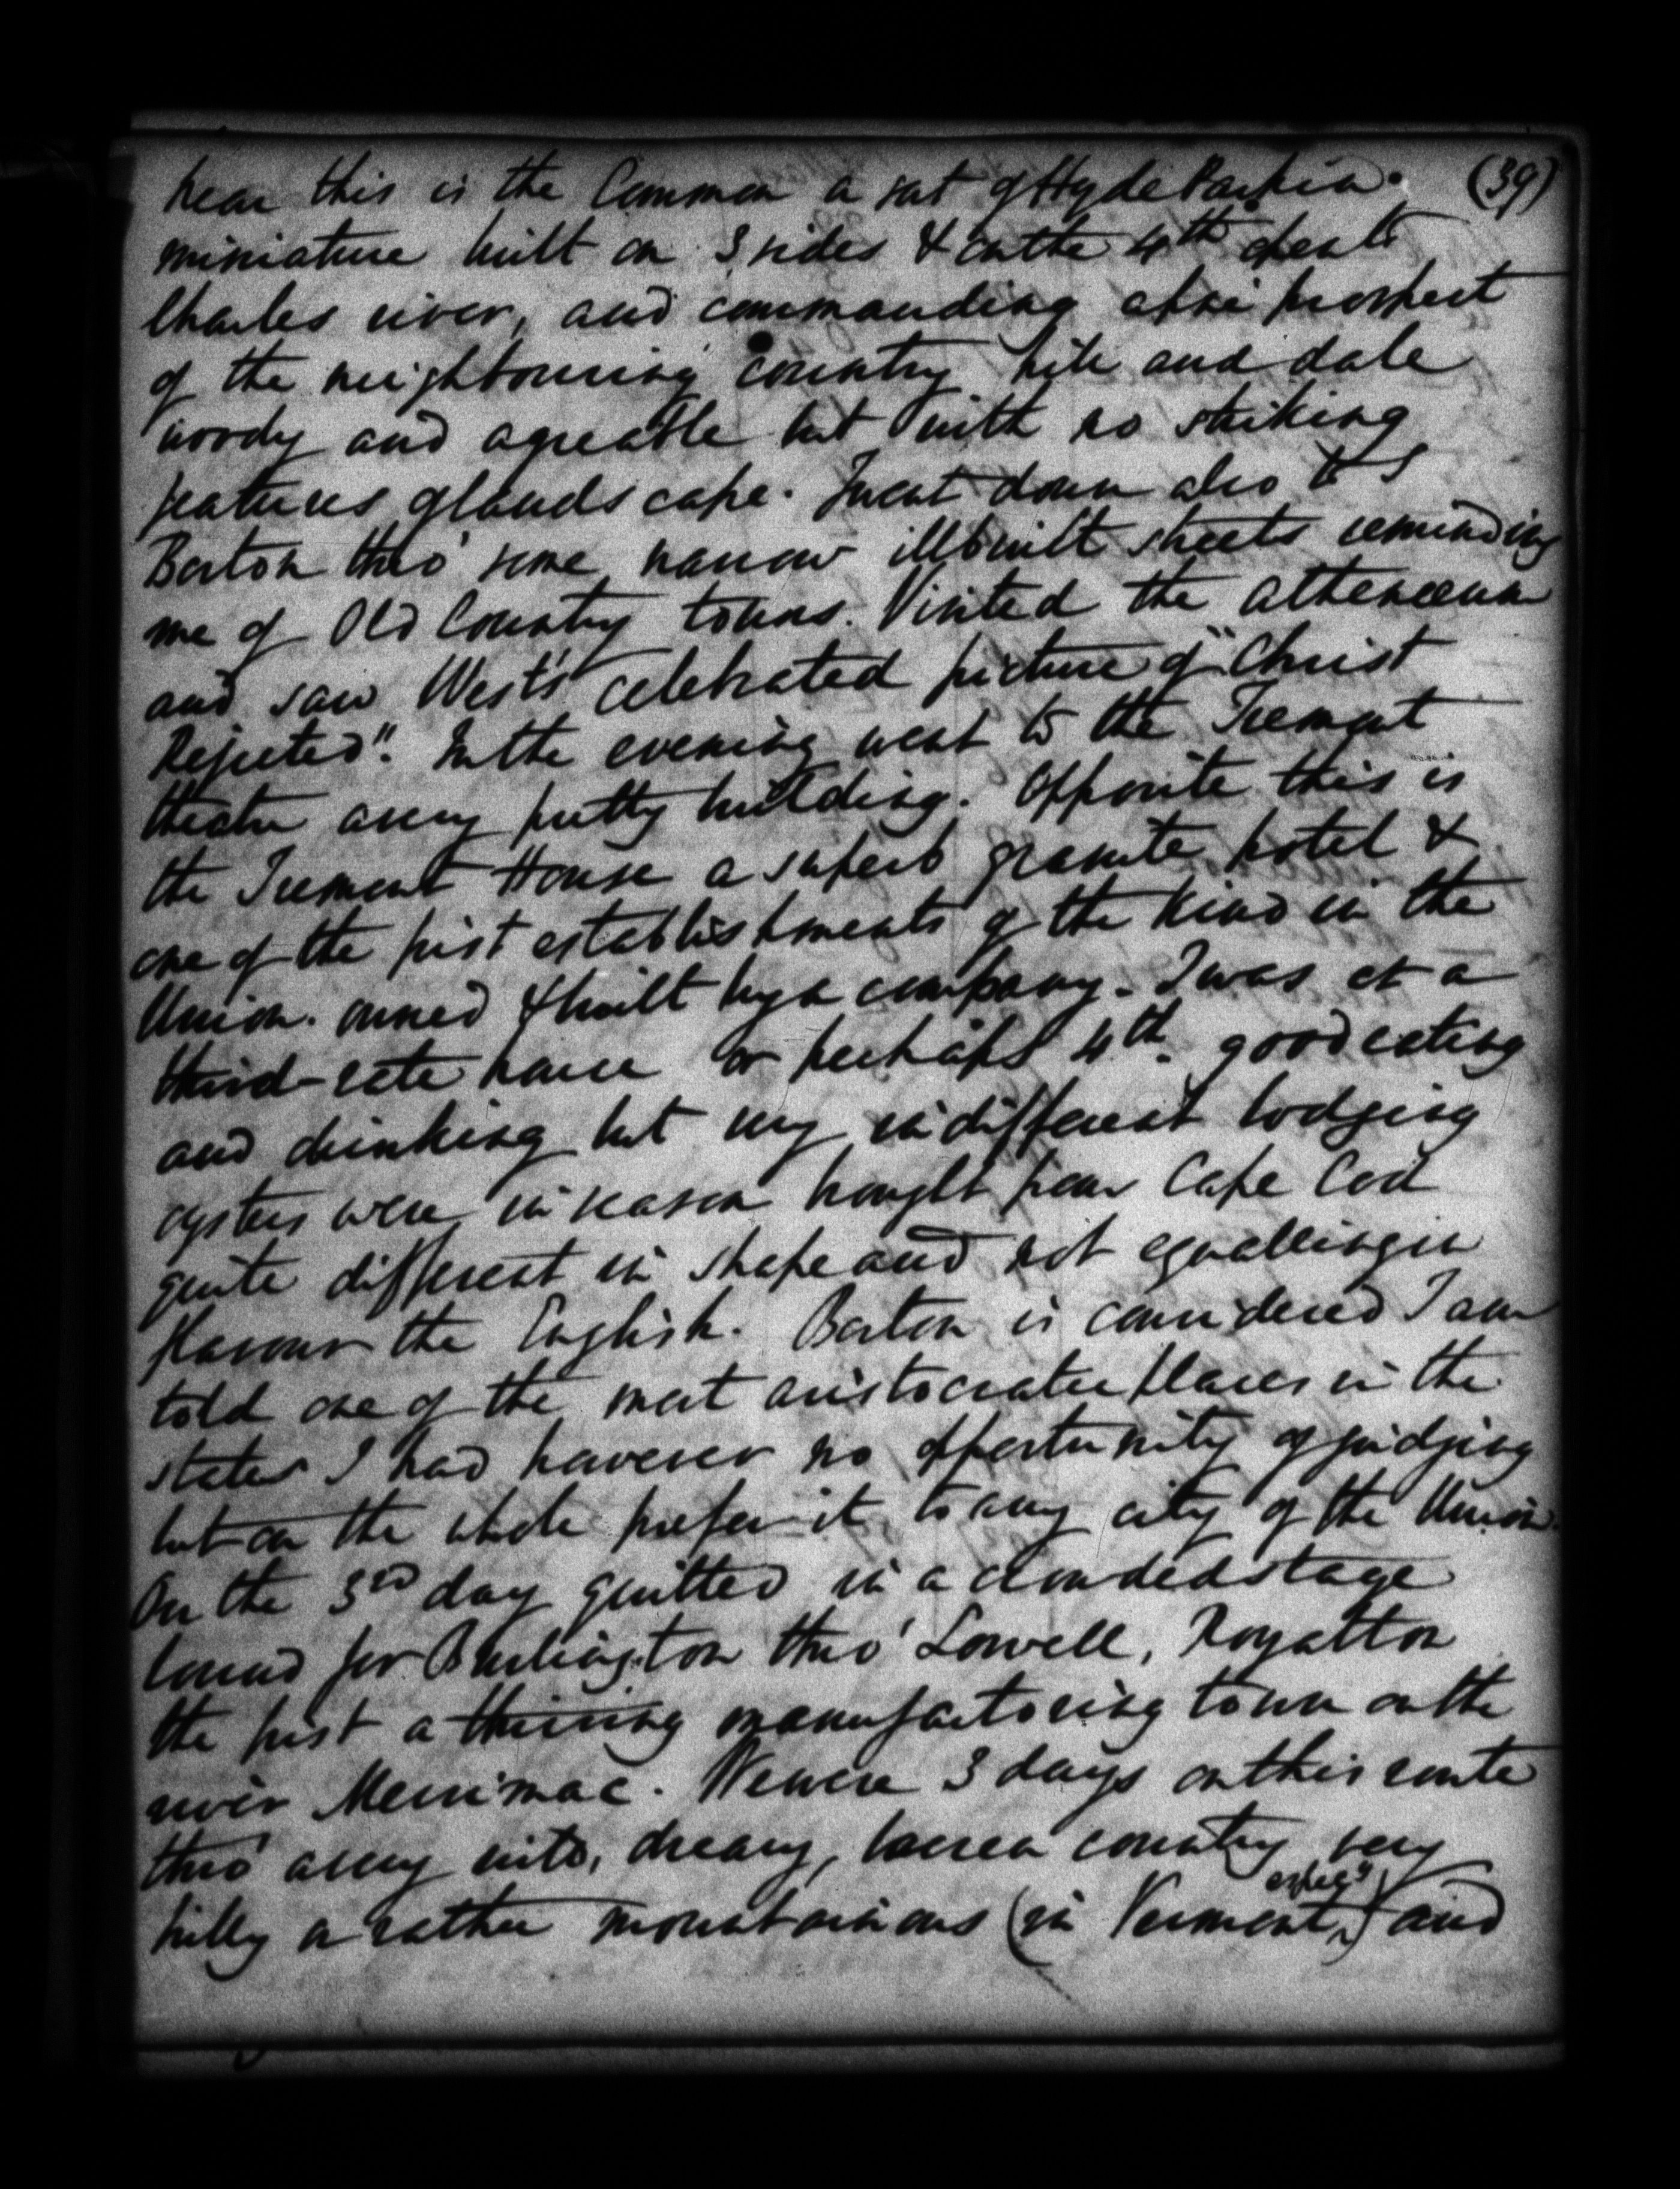 near this is the Common a sort of Hyde Park in (39)
miniature built on 3 sides & on the 4th open to
Charles river, and commanding a fine prospect
of the neighbouring country hill and dale
woody and agreable but with no striking
features of landscape. I went down also to S
Boston thro' some narrow illbuilt streets reminding
me of Old Country towns. Visited the Atheneum
and saw West's celebrated picture of "Christ
Rejected". In the evening went to the Tremont
theatre a very pretty building. Opposite this is
the Tremont House a superb granite hotel &
one of the first establishments of the kind in the
Union. owned & built by a company. I was at a
third-rate house or perhaps 4th. good eating
and drinking but very indifferent lodging
oysters were in season brought from Cape Cod
quite different in shape and not equalling in
flavour the English. Boston is considered I am
told one of the most aristocratic places in the
states I had however no opportunity of judging
but on the whole prefer it to any city of the Union.
On the 3rd day quitted in a crowded stage
bound for Burlington thro' Lowell, Royalton
the first a thriving manufactoring town on the
river Merrimac. We were 3 days on this route
thro' a very wild, dreary, barren country very
hilly or rather mountainous (in Vermont espec'y) and